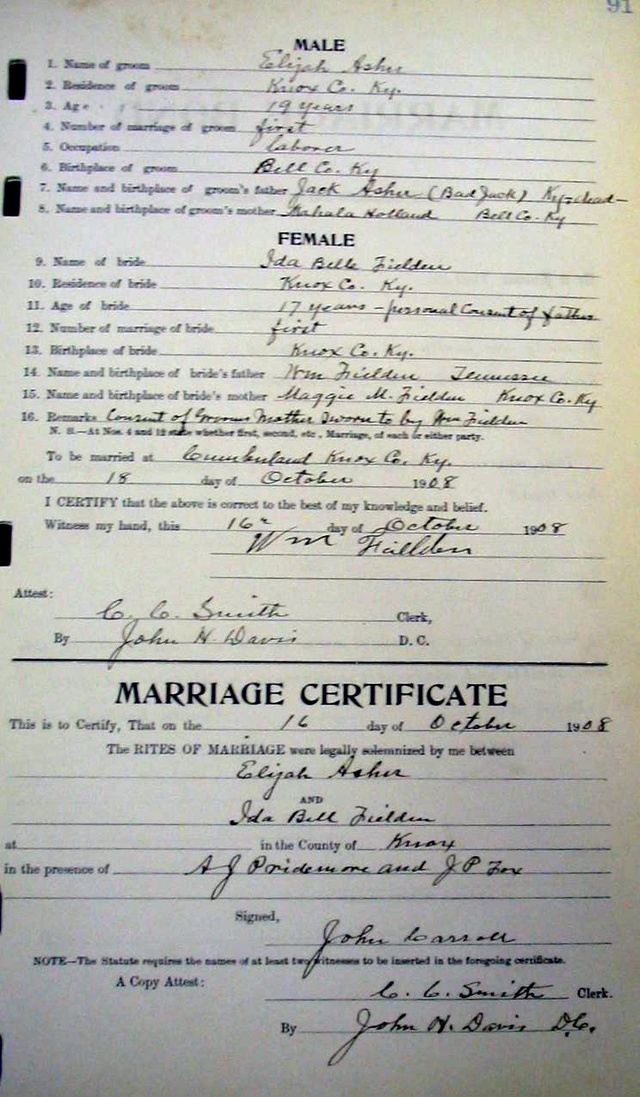 91
MALE
1. Name of groom Elijah Asher
2. Residence of groom Knox Co. Ky.
3. Age 19 years
4. Number of marriage of groom first
5. Occupation laborer
6. Birthplace of groom Bell Co. Ky
7. Name and birthplace of groom's father Jack Asher (Bad Jack) Ky - dead -
8. Name and birthplace of groom's mother Mahala Holland Bell Co. Ky
FEMALE
9. Name of bride Ida Belle Fielden
10. Residence of bride Knox Co. Ky.
11. Age of bride 17 years - personal Consent of father
12. Number of marriage of bride first
13. Birthplace of bride Knox Co. Ky.
14. Name and birthplace of bride's father Wm Fielden Tennessee
15. Name and birthplace of bride's mother Maggie M. Fielden Knox Co. Ky
16. Remarks Consent of Grooms Mother Sworn to by Wm Fielden
N. B.—At Nos. 4 and 12 state whether first, second, etc., Marriage, of each or either party.
To be married at Cumberland Knox Co. Ky.
on the 18 day of October 1908
I CERTIFY that the above is correct to the best of my knowledge and belief.
Witness my hand, this 16" day of October 1908
Wm Fiellden
Attest:
C. C. Smith Clerk,
By John H. Davis D. C.
MARRIAGE CERTIFICATE
This is to Certify, That on the 16 day of October 1908
The RITES OF MARRIAGE were legally solemnized by me between
Elijah Asher
AND
Ida Bell Fielden
at in the County of Knox
in the presence of A J Pridemore and J P Fox
Signed,
John Carroll
NOTE—The Statute requires the names of at least two witnesses to be inserted in the foregoing certificate.
A Copy Attest:
C. C. Smith Clerk.
By John H. Davis D.C.